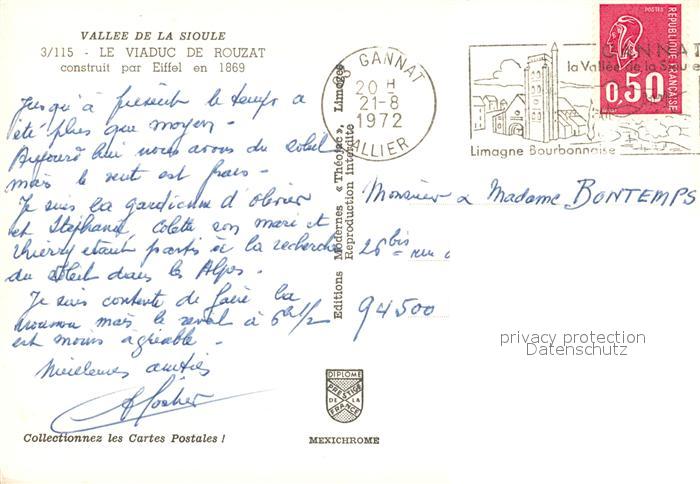 VALLEE DE LA SIOULE
3/115 - LE VIADUC DE ROUZAT
construit par Eiffel en 1869
Jusqu'à présent le temps a
été plus que moyen -
Aujourd'hui nous avons du soleil
mais le vent est frais -
Je suis la gardienne d'Olivier
et Stéphane, Colette son mari et
Thierry étant partis à la recherche
du soleil dans les Alpes -
Je suis contente de faire la
nounou mais le réveil à 6h 1/2
est moins agréable -
Meilleures amitiés
Collectionnez les Cartes Postales !
Editions Modernes « Théojac », Limoges
Reproduction Interdite
DIPLOME
PRESTIGE
DE LA
FRANCE
MEXICHROME
GANNAT
20 H
21-8
1972
ALLIER
GANNAT
la Vallée de la Sioule
Limagne Bourbonnaise
POSTES
REPUBLIQUE FRANÇAISE
0,50
Monsieur & Madame BONTEMPS
26 bis rue
94500
privacy protection
Datenschutz